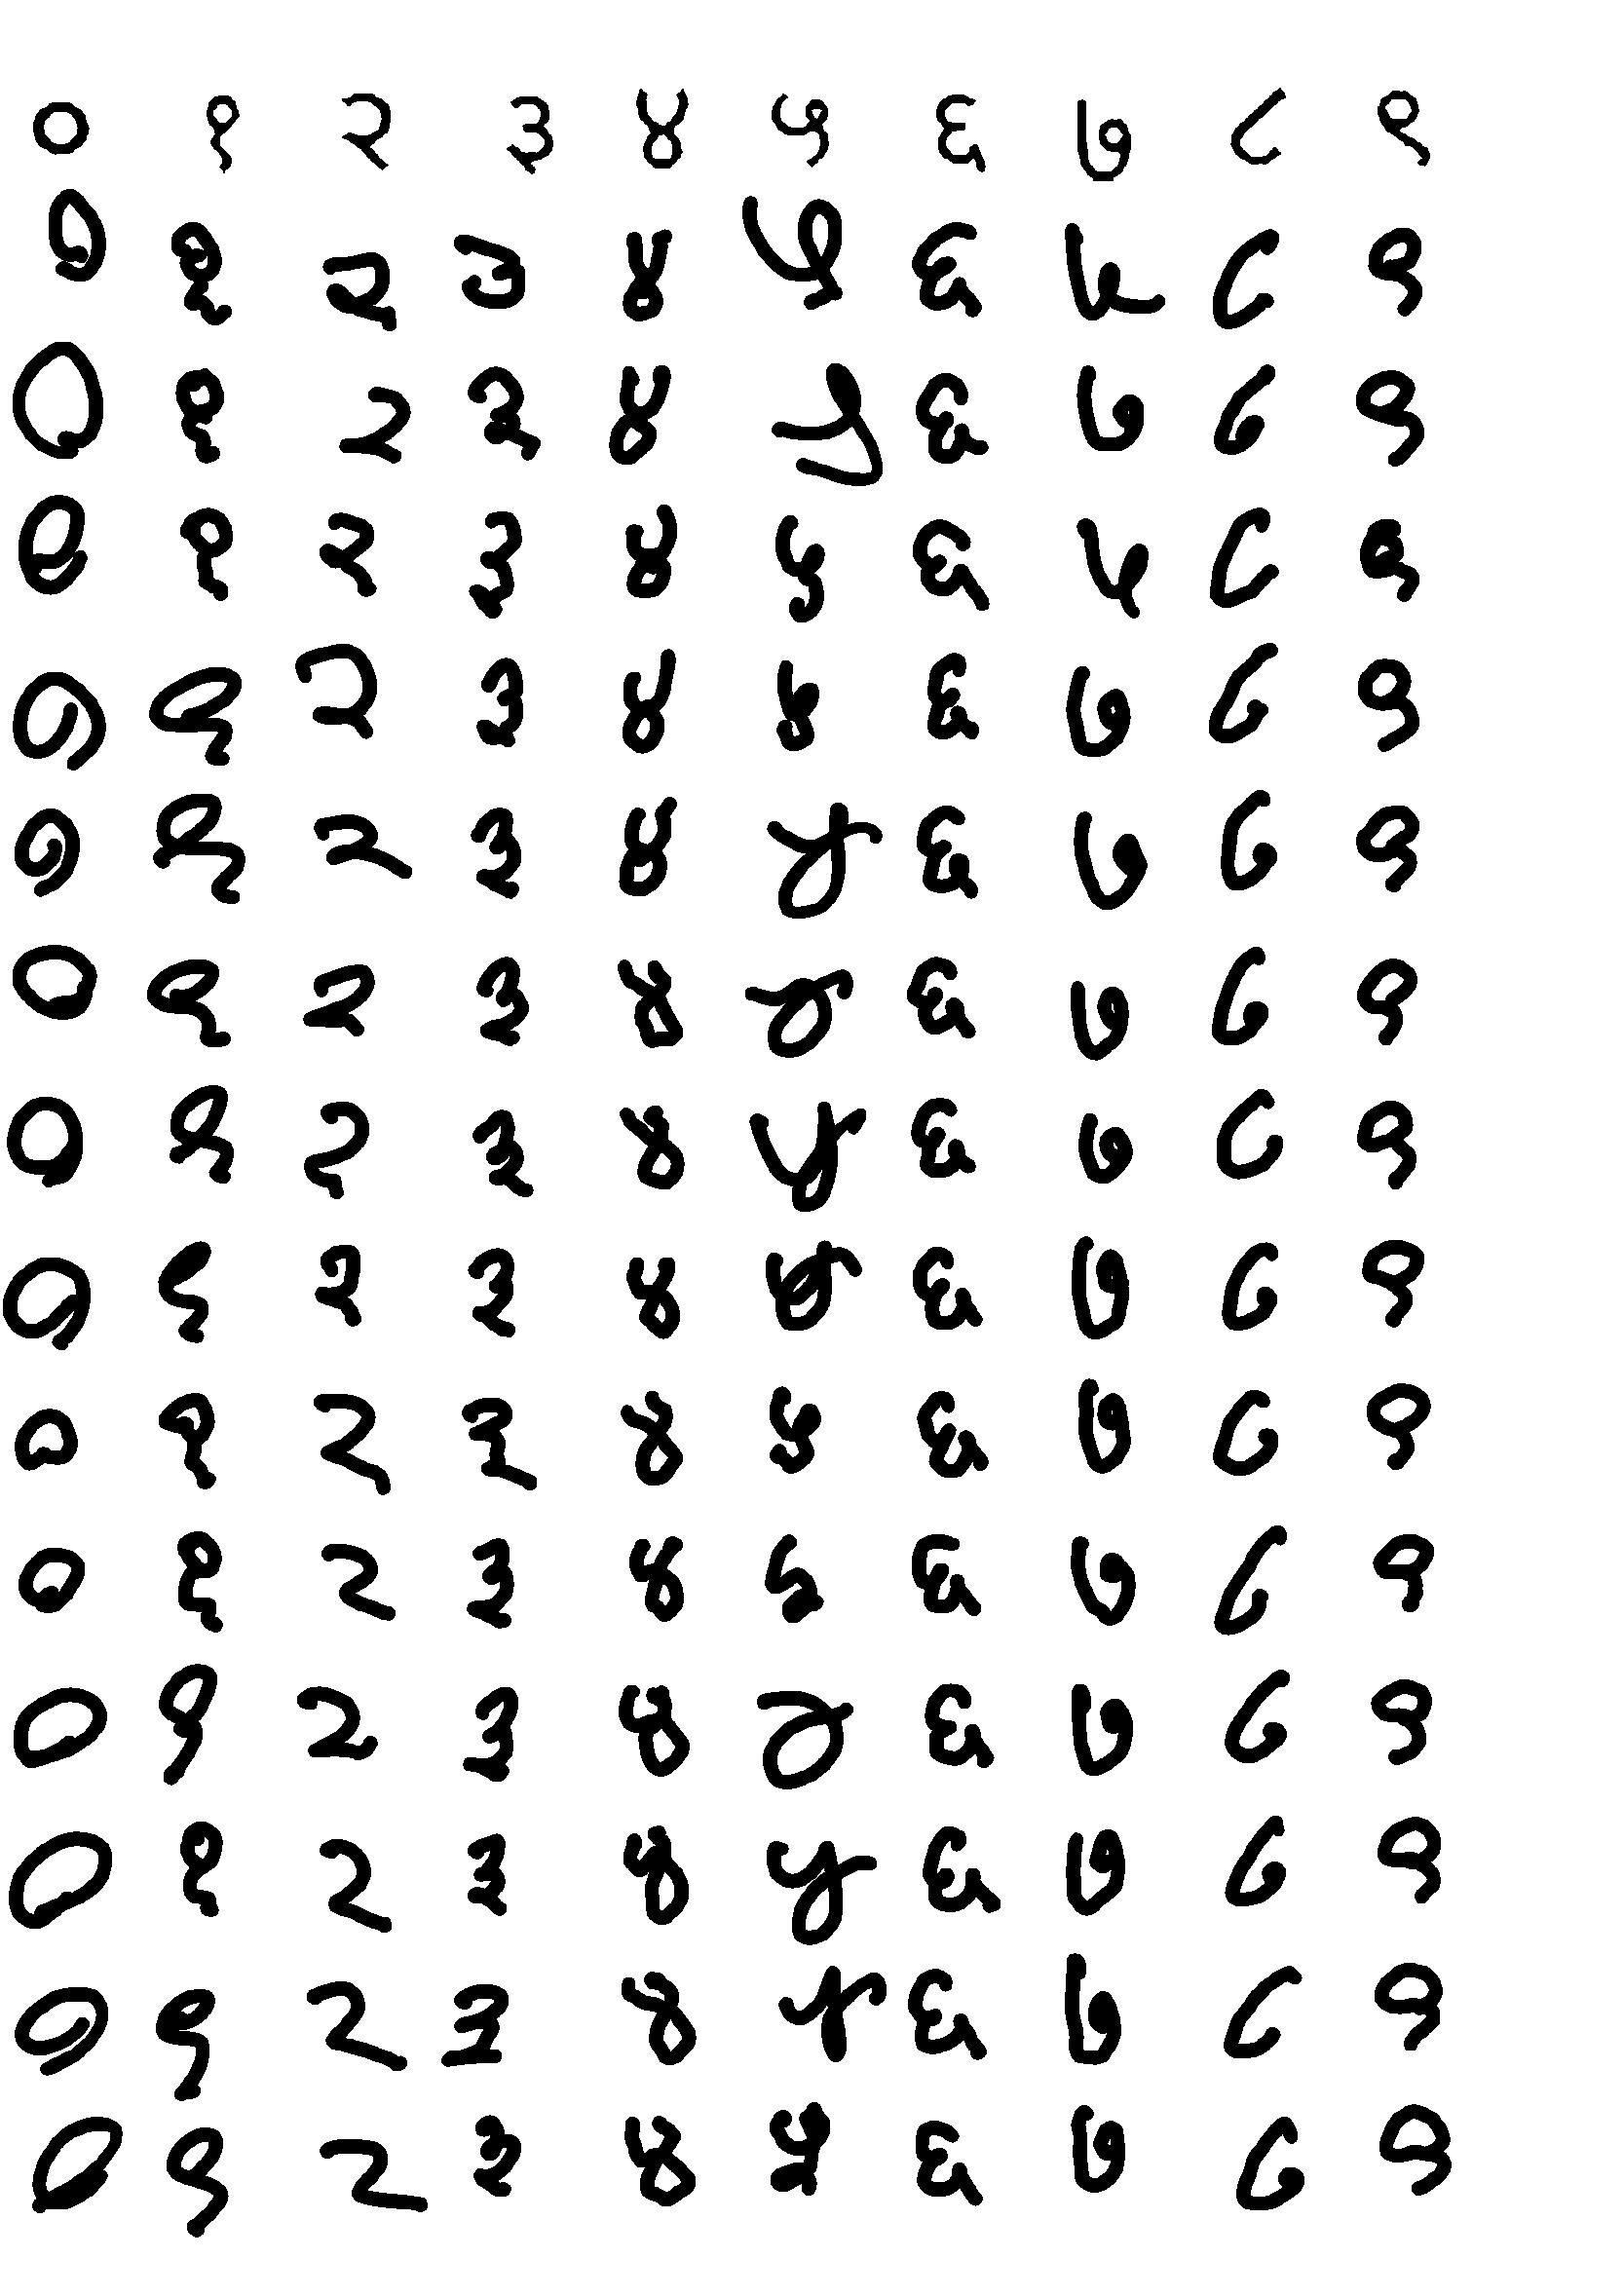 ० १ २ ३ ४ ५ ६ ७ ८ ९
० १ २ ३ ४ ५ ६ ७ ८ ९
० १ २ ३ ४ ५ ६ ७ ८ ९
० १ २ ३ ४ ५ ६ ७ ८ ९
० १ २ ३ ४ ५ ६ ७ ८ ९
० १ २ ३ ४ ५ ६ ७ ८ ९
० १ २ ३ ४ ५ ६ ७ ८ ९
० १ २ ३ ४ ५ ६ ७ ८ ९
० १ २ ३ ४ ५ ६ ७ ८ ९
० १ २ ३ ४ ५ ६ ७ ८ ९
० १ २ ३ ४ ५ ६ ७ ८ ९
० १ २ ३ ४ ५ ६ ७ ८ ९
० १ २ ३ ४ ५ ६ ७ ८ ९
० १ २ ३ ४ ५ ६ ७ ८ ९
० १ २ ३ ४ ५ ६ ७ ८ ९